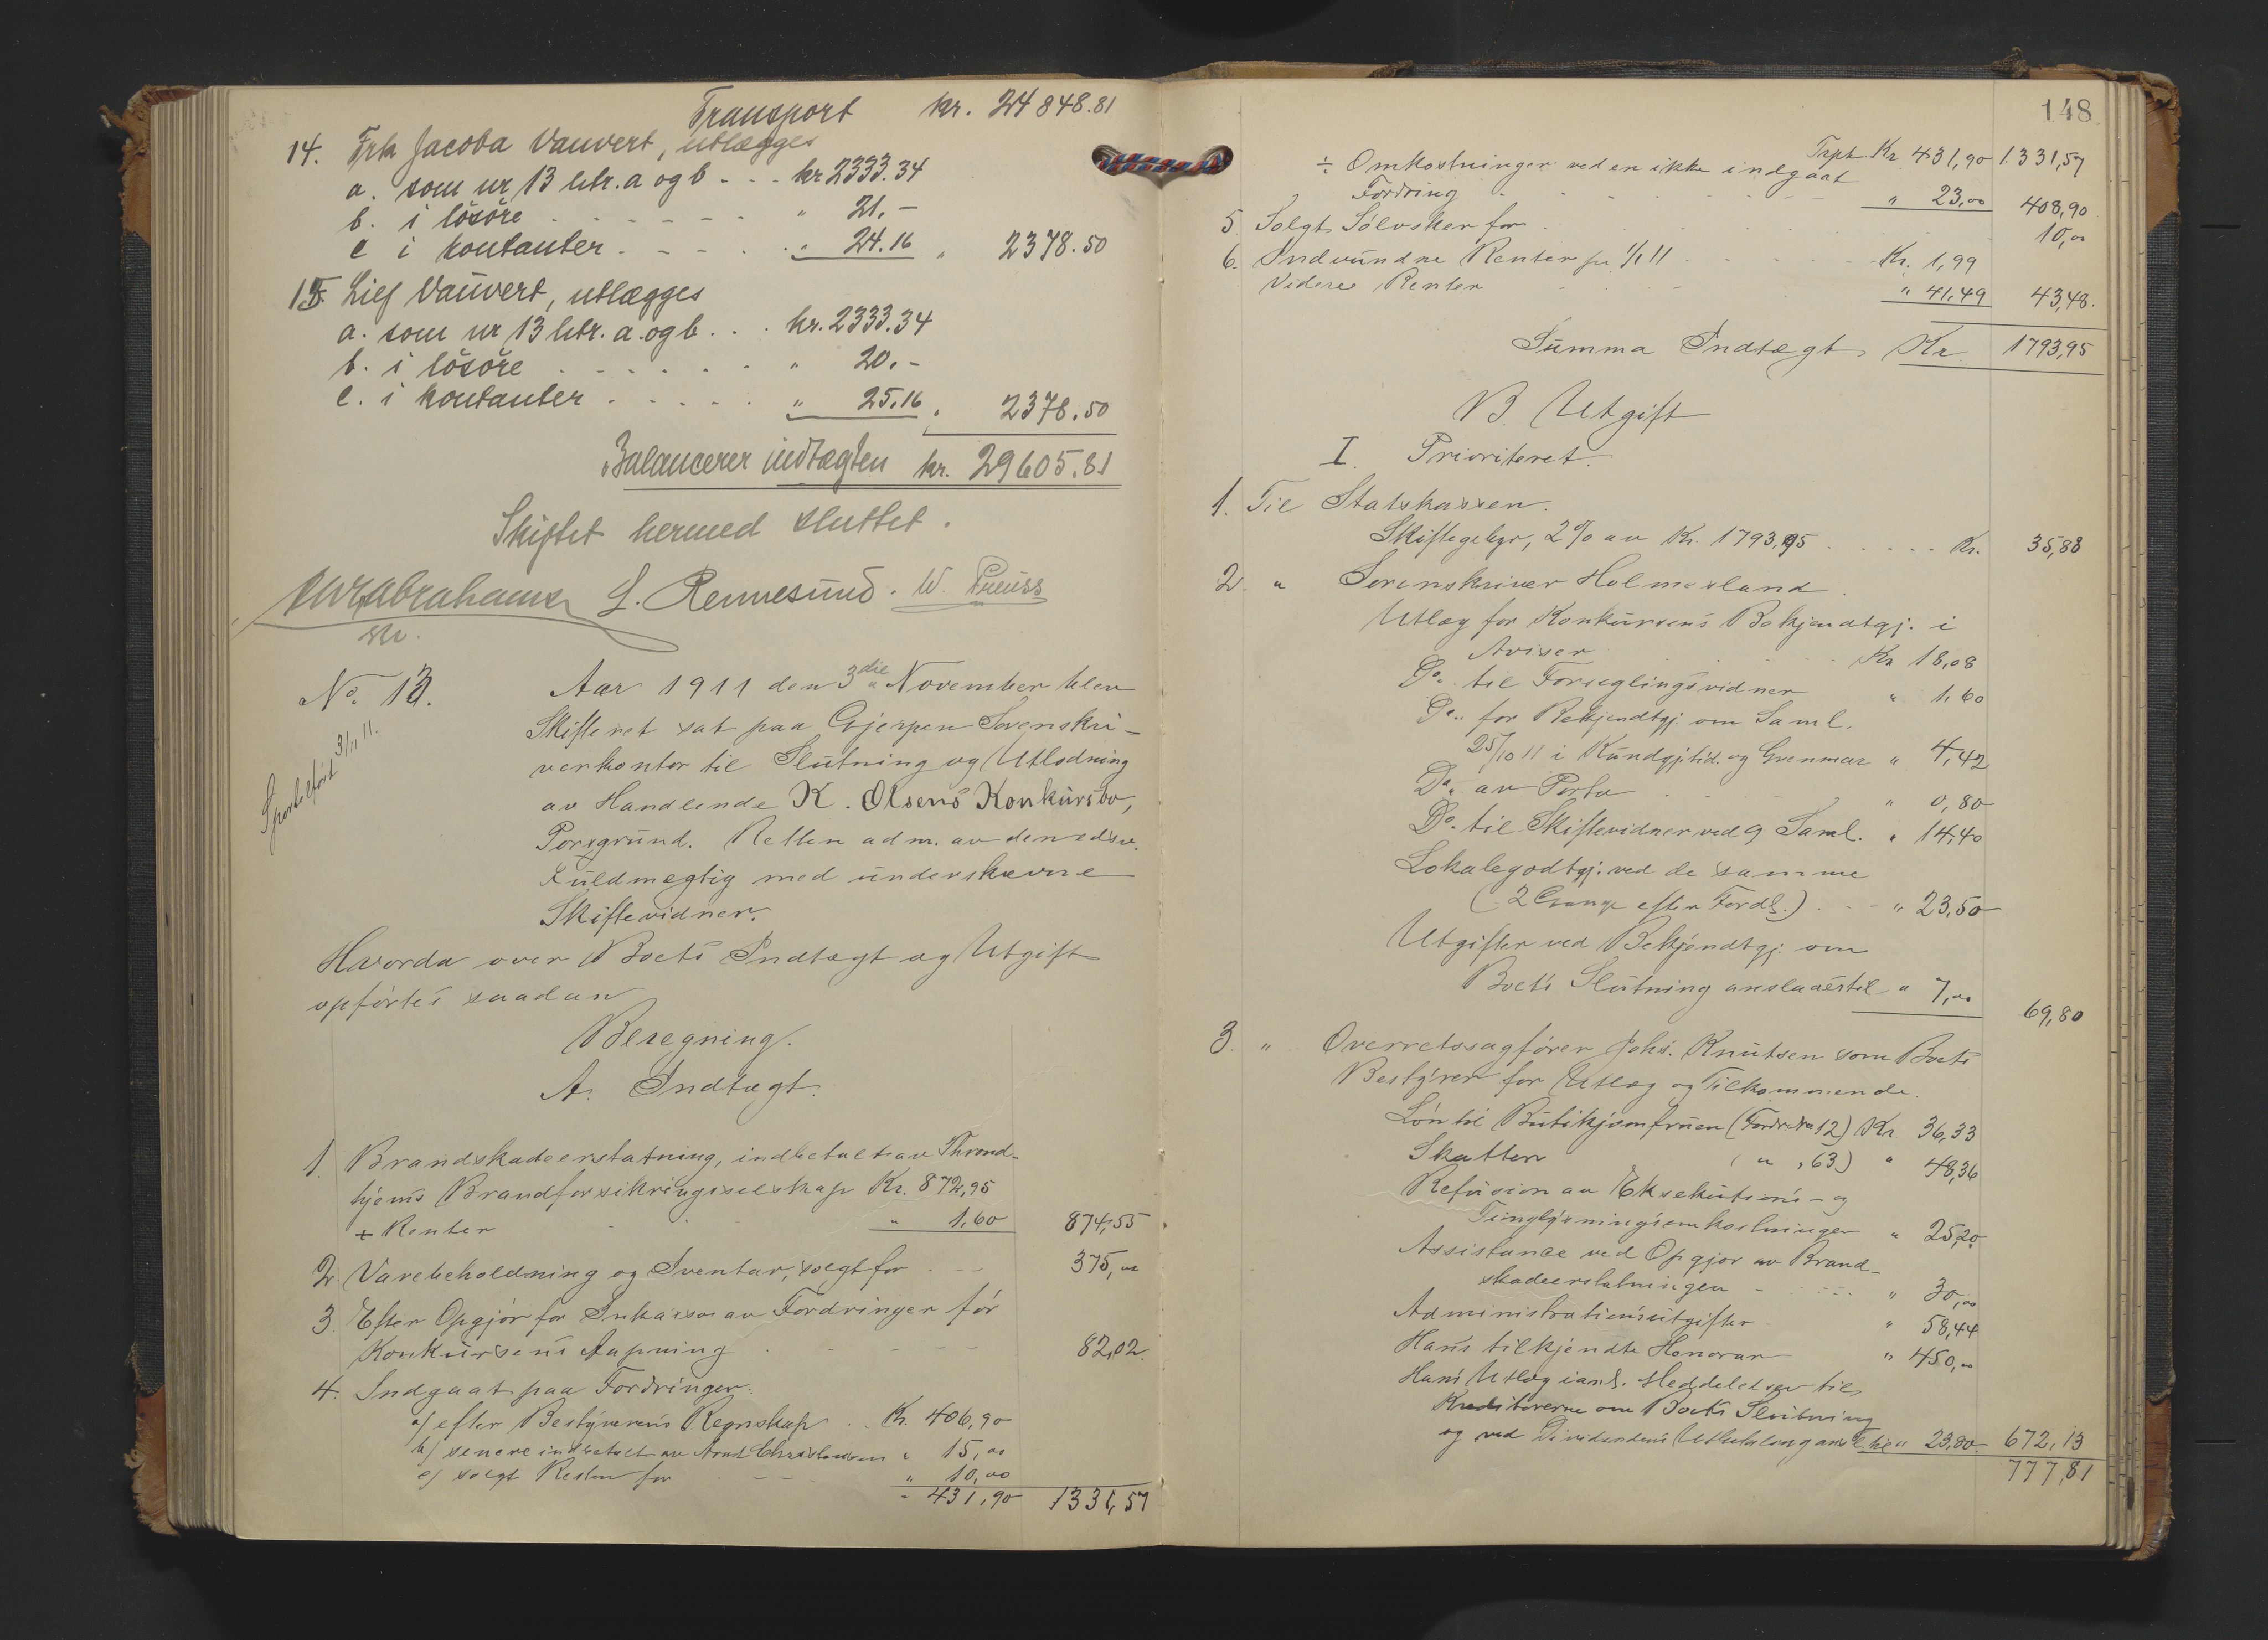 Transport kr. 24848.81
14. Frk Jacoba Vauvert, utlægges
a. som nr 13 litr. a og b . . . kr 2333.34
b. i lösöre . . . . . . " 21.-
c i kontanter . . . . . " 24.16 " 2378.50
15. Lief Vauvert, utlægges
a. som nr 13 litr. a. og b . . . kr. 2333.34
b. i lösöre . . . . . . " 20.-
c. i kontanter . . . . . " 25.16 " 2378.50
Balancerer indtægten kr. 29605.81
Skiftet hermed sluttet.
L. Rennesund. W. Preuss
No. 13. Aar 1911 den 3die November blev
Skifteret sat paa Gjerpen Sorenskri-
verkontor til Slutning og Utlodning
av Handlende K. Olsens Konkursbo,
Porsgrund. Retten adm. av den edsv.
Fuldmægtig med underskrevne
Skiftevidner.
Sportelført 3/11 11.
Hvorda over Boets Indtægt og Utgift
opførtes saadan
Beregning.
A. Indtægt.
1. Brandskadeerstatning, indbetalt av Thrond-
hjems Brandforsikringsselskap Kr. 872,95
+ Renter " 1,60 874,55
2 Varebeholdning og Iventar, solgt for 375,00
3 Efter Opgjør for Inkasso av Fordringer før
Konkursens Aapning 82,02
4. Indgaat paa Fordringer:
a/ efter Bestyrerens Regnskap . . Kr. 406,90
b/ senere indbetalt av Arnt Christensen " 15,00
c/ solgt Resten for " 10,00
" 431,90 1331,57
148
Trpt. Kr 431,90 1331,57
÷ Omkostninger ved en ikke indgaat
Fordring " 23,00 408,90
5 Solgt Sølvsker for 10,00
6. Indvundne Renter pr 1/1 11 Kr. 1,99
Videre Renter " 41,49 43,48.
Summa Indtægt Kr. 1793,95
B. Utgift
I. Prioriteret.
1. Til Statskassen.
Skiftegebyr, 2% av Kr. 1793,95 . . . . . Kr. 35,88
2 " Sorenskriver Holmesland.
Utlæg for Konkursens Bekjendtgj. i
Aviser Kr 18,08
Do. til Forseglingsvidner " 1,60
Do. for Bekjendtgj. om Saml.
25/10 11 i Kundgj.tid. og Grenmar " 4,42
Do. av Porto " 0,80
Do. til Skiftevidner ved 9 Saml. " 14,40
Lokalegodtgj. ved de samme
(2 Gange efter Fordl.) . - - " 23,50
Utgifter ved Bekjendtgj. om
Boets Slutning anslaaes til " 7,00 69,80
3. " Overretssagfører Johs. Knutsen som Boets
Bestyrer for Utlæg og Tilkommende.
Løn til Butikjomfruen (Fordr. No 12) Kr. 36,33
Skatter ( " " 63) " 48,36
Refusion av Eksekutions- og
Tinglysningsomkostninger " 25,20
Assistance ved Opgjør av Brand-
skadeerstatningen " 30,00
Administrationsutgifter " 58,44
Hans tilkjendte Honorar " 450,00
Hans Utlæg i anl. Meddelelser til
Kreditorerne om Boets Slutning
og ved Dividendens Utbetaling ansl. til " 23,80 672,13
777,81